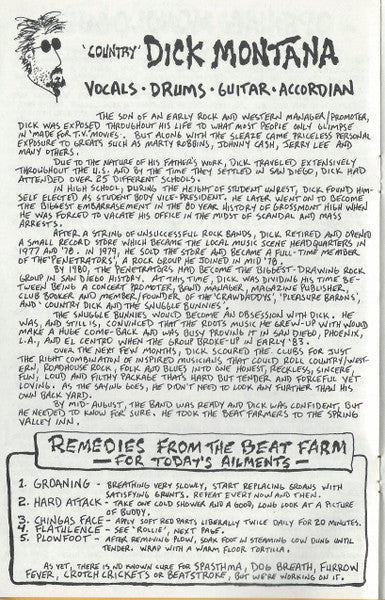 'COUNTRY' DICK MONTANA
VOCALS • DRUMS • GUITAR • ACCORDIAN
THE SON OF AN EARLY ROCK AND WESTERN MANAGER/PROMOTER,
DICK WAS EXPOSED THROUGHOUT HIS LIFE TO WHAT MOST PEOPLE ONLY GLIMPSE
IN 'MADE FOR T.V. MOVIES'. BUT ALONG WITH THE SLEAZE CAME PRICELESS PERSONAL
EXPOSURE TO GREATS SUCH AS MARTY ROBBINS, JOHNNY CASH, JERRY LEE AND
MANY OTHERS.
DUE TO THE NATURE OF HIS FATHER'S WORK, DICK TRAVELED EXTENSIVELY
THROUGHOUT THE U.S. AND BY THE TIME THEY SETTLED IN SAN DIEGO, DICK HAD
ATTENDED OVER 25 DIFFERENT SCHOOLS.
IN HIGH SCHOOL, DURING THE HEIGHT OF STUDENT UNREST, DICK FOUND HIM-
SELF ELECTED AS STUDENT BODY VICE-PRESIDENT. HE LATER WENT ON TO BECOME
THE BIGGEST EMBARRASEMENT IN THE 80 YEAR HISTORY OF GROSSMONT HIGH WHEN
HE WAS FORCED TO VACATE HIS OFFICE IN THE MIDST OF SCANDAL AND MASS
ARRESTS.
AFTER A STRING OF UNSUCCESSFUL ROCK BANDS, DICK RETIRED AND OPENED
A SMALL RECORD STORE WHICH BECAME THE LOCAL MUSIC SCENE HEADQUARTERS IN
1977 AND '78. IN 1979, HE SOLD THE STORE AND BECAME A FULL-TIME MEMBER
OF THE 'PENETRATORS', A ROCK GROUP HE JOINED IN MID '78.
BY 1980, THE PENETRATORS HAD BECOME THE BIGGEST-DRAWING ROCK
GROUP IN SAN DIEGO HISTORY. AT THIS TIME, DICK WAS DIVIDING HIS TIME BE-
TWEEN BEING A CONCERT PROMOTER, BAND MANAGER, MAGAZINE PUBLISHER,
CLUB BOOKER AND MEMBER/FOUNDER OF THE 'CRAWDADDYS', 'PLEASURE BARONS',
AND 'COUNTRY DICK AND THE SNUGGLE BUNNIES'.
THE SNUGGLE BUNNIES WOULD BECOME AN OBSESSION WITH DICK. HE
WAS, AND STILL IS, CONVINCED THAT THE ROOTS MUSIC HE GREW-UP WITH WOULD
MAKE A HUGE COME-BACK AND WAS BUSY PROVING IT IN SAN DIEGO, PHOENIX,
L.A., AND EL CENTRO WHEN THE GROUP BROKE-UP IN EARLY '83.
OVER THE NEXT FEW MONTHS, DICK SCOURED THE CLUBS FOR JUST
THE RIGHT COMBINATION OF INSPIRED MUSICIANS THAT COULD ROLL COUNTRY/WEST-
ERN, ROADHOUSE ROCK, FOLK AND BLUES INTO ONE HONEST, RECKLESS, SINCERE,
FUN, LOUD AND FILTHY PACKAGE THAT'S HARD BUT TENDER AND FORCEFUL YET
LOVING. AS THE SAYING GOES, HE DIDN'T NEED TO LOOK ANY FURTHER THAN HIS
OWN BACK YARD.
BY MID-AUGUST, THE BAND WAS READY AND DICK WAS CONFIDENT, BUT
HE NEEDED TO KNOW FOR SURE. HE TOOK THE BEAT FARMERS TO THE SPRING
VALLEY INN.
REMEDIES FROM THE BEAT FARM
— FOR TODAY'S AILMENTS —
1. GROANING - BREATHING VERY SLOWLY, START REPLACING GROANS WITH
SATISFYING GRUNTS. REPEAT EVERY NOW AND THEN.
2. HARD ATTACK - TAKE ONE COLD SHOWER AND A GOOD, LONG LOOK AT A PICTURE
OF BUDDY.
3. CHINGAS FACE - APPLY SOFT RED DARTS LIBERALLY TWICE DAILY FOR 20 MINUTES.
4. FLATULENCE - SEE 'ROLLIE', NEXT PAGE.
5. PLOWFOOT - AFTER REMOVING PLOW, SOAK FOOT IN STEAMING COW DUNG UNTIL
TENDER. WRAP WITH A WARM FLOOR TORTILLA.
AS YET, THERE IS NO KNOWN CURE FOR SPASTHMA, DOG BREATH, FURROW
FEVER, CROTCH CRICKETS OR BEATSTROKE, BUT WE'RE WORKING ON IT.